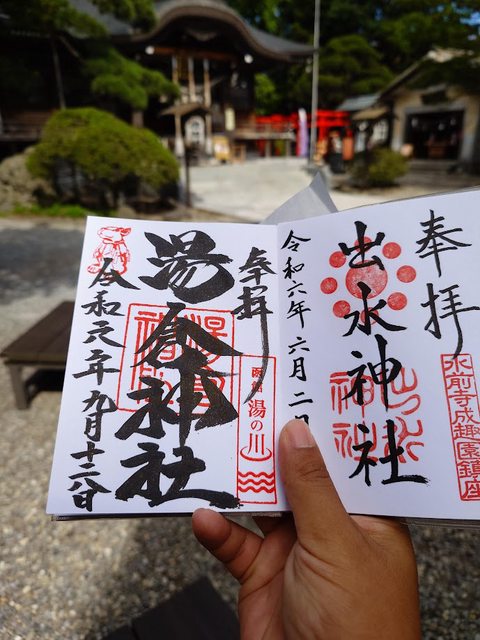 奉拝
水前寺成趣園鎮座
出水神社
令和六年六月二
奉拝
湯の川
湯倉神社
令和元年九月十六日